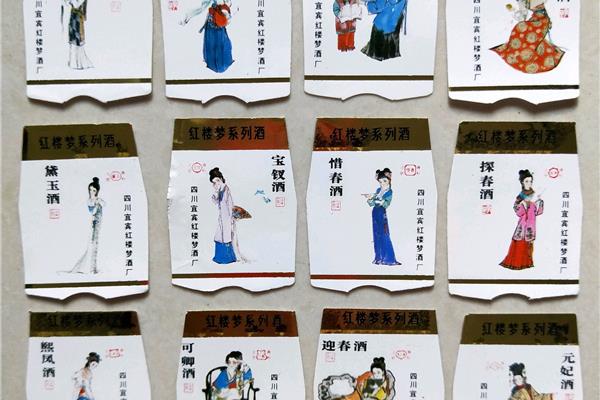 四川宜宾红楼梦酒厂
四川宜宾红楼梦酒厂
四川宜宾红楼梦酒厂
酒
红楼梦系列酒
黛玉酒
四川宜宾红楼梦酒厂
红楼梦系列酒
宝钗酒
四川宜宾红楼梦酒厂
红楼梦系列酒
惜春酒
四川宜宾红楼梦酒厂
红楼梦系列酒
探春酒
四川宜宾红楼梦酒厂
红楼梦系列酒
熙凤酒
四川宜
红楼梦系列酒
可卿酒
四川宜
红楼梦系列酒
迎春酒
四川宜
红楼梦系列酒
元妃酒
四川宜